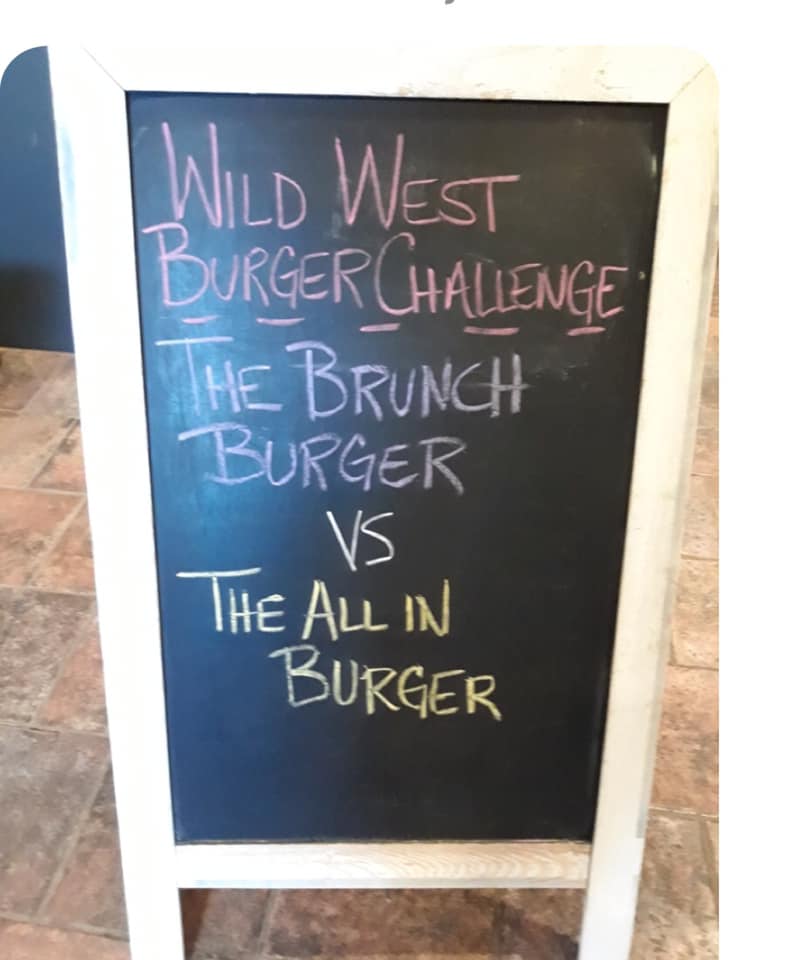 WILD WEST
BURGER CHALLENGE
THE BRUNCH
BURGER
VS
THE ALL IN
BURGER